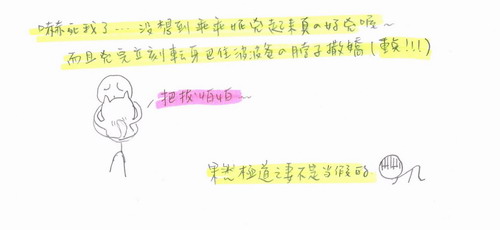 嚇死我了… 沒想到乖乖妮兇起來真の好兇喔~
而且兇完立刻轉身巴住波波爸の脖子撒嬌( !!!)
把拔怕怕~
果然極道之妻不是當假的